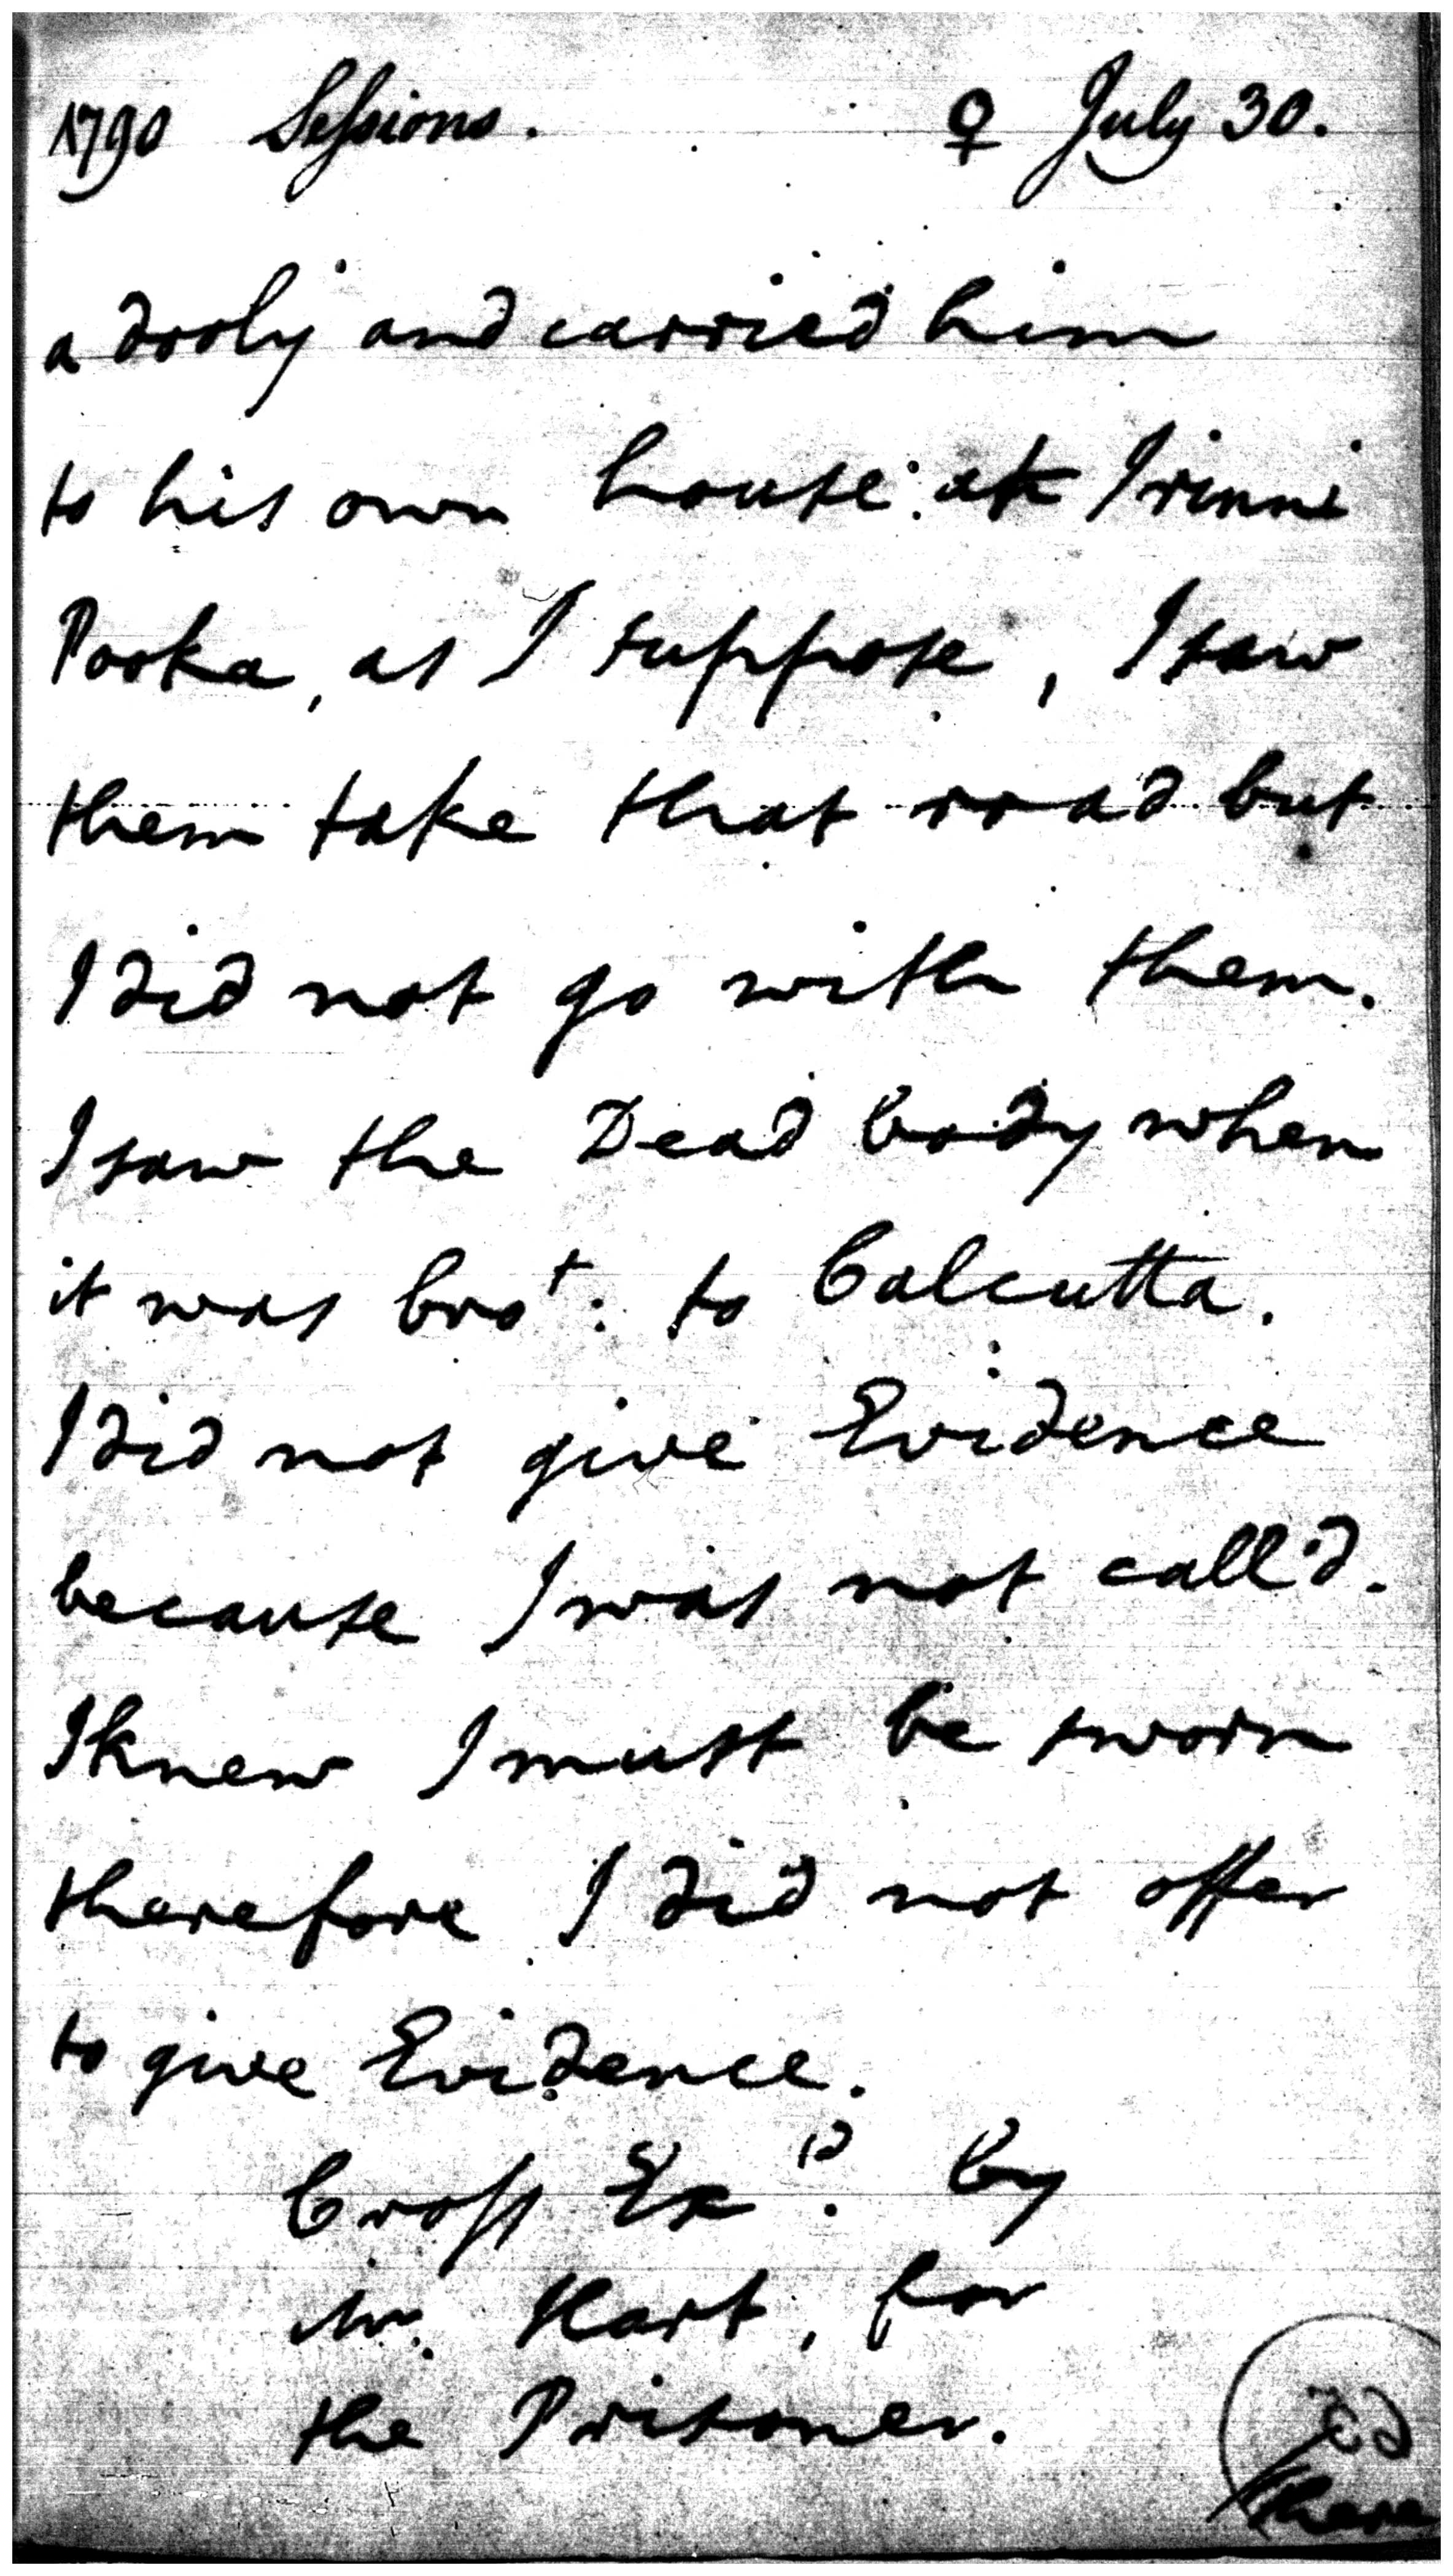 1790 Sessions. ♀ July 30.
a dooly and carried him
to his own house at Irinni
Pooka, as I suppose, I saw
them take that road but
I did not go with them.
I saw the Dead body when
it was bro^t: to Calcutta.
I did not give Evidence
because I was not call'd.
I knew I must be sworn
therefore I did not offer
to give Evidence.
Cross Ex^d: by
Mr. Hart, for
the Prisoner.